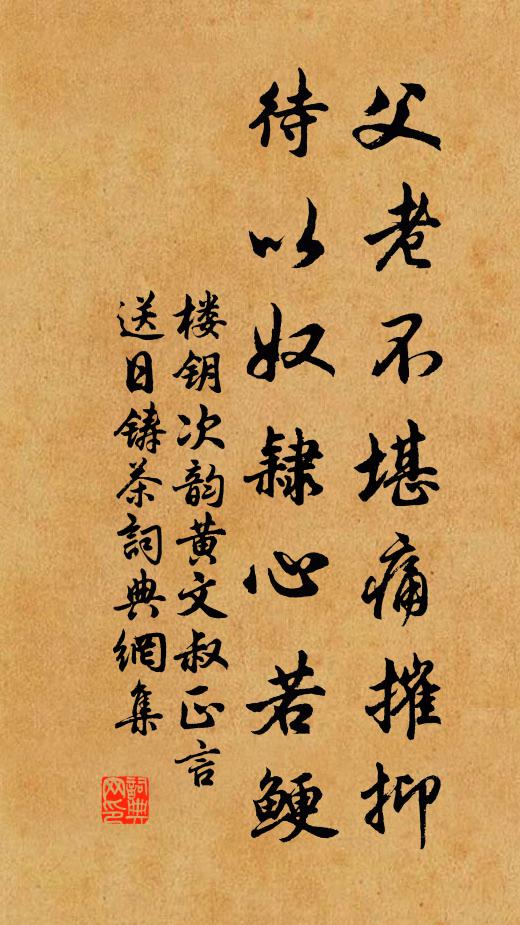 父老不堪痛摧抑
待以奴隸心若鲠
楼钥次韵黄文叔正言
送日铸茶詞典網集
詞典
网印